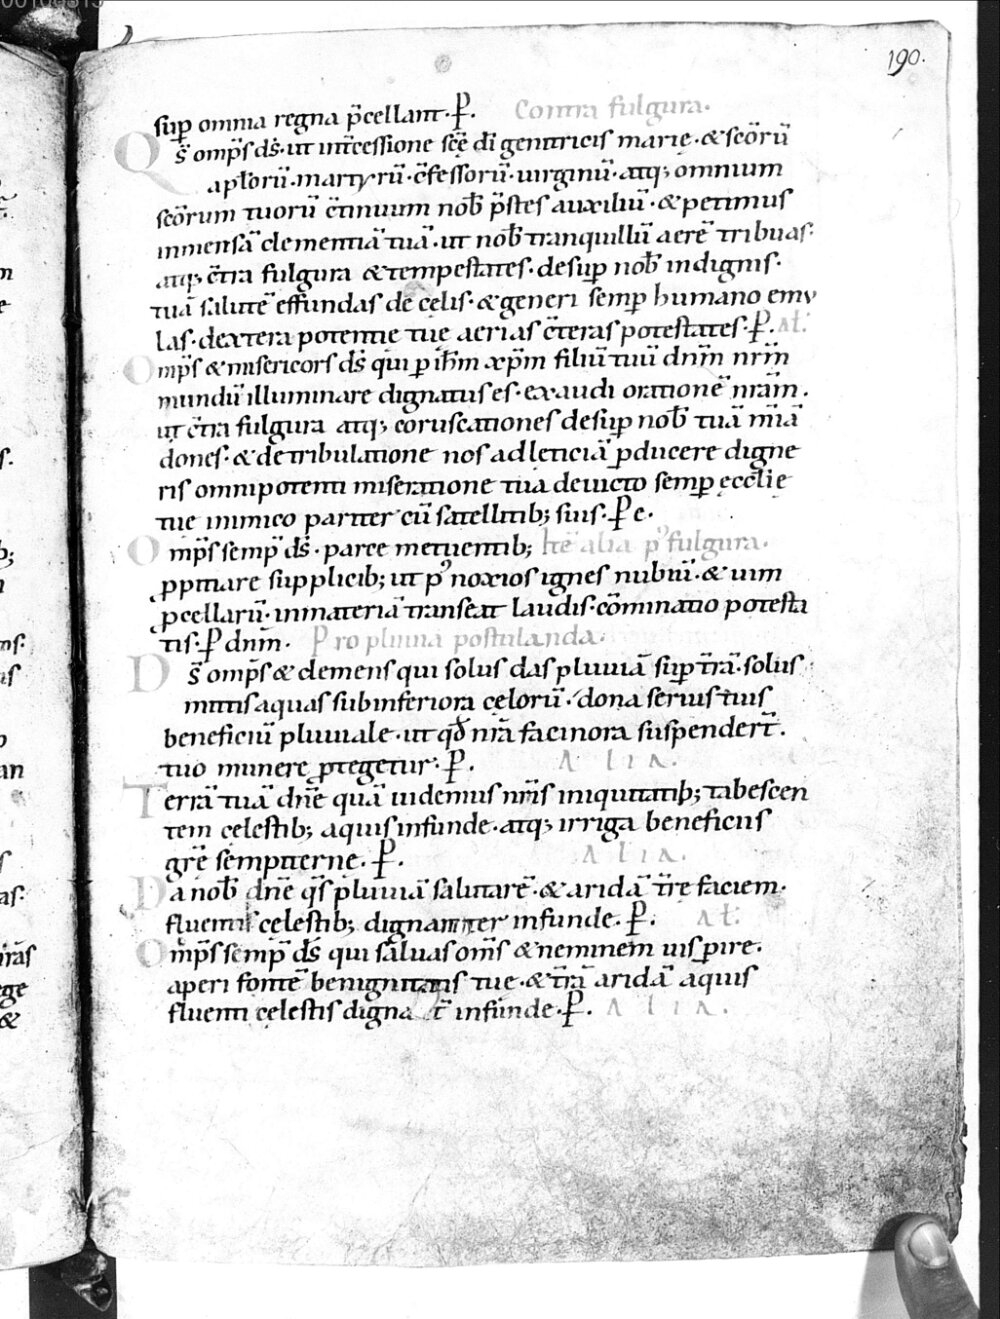 190.
sup̄ omnia regna p̄cellant. P̄. Contra fulgura.
Q s̄ omp̄s ds̄. ut int̄cessione scē dī genitricis marię. & scōrū
apłorū. martyrū. c̄fessorū. uirginū. atq; omnium
scōrum tuorū c̄tinuum nob̄ p̄stes auxiliū. & petimus
inmensā clementiā tuā. ut nob̄ tranquillū aerē tribuas.
atq; c̄tra fulgura & tempestates. desup̄ nob̄ indignis.
tuā salutē effundas de cęlis. & generi semp̄ humano emu
las. dextera potentie tuę aerias c̄teras potestates. P̄. Ał.
O mp̄s & misericors ds̄ qui p̱ ih̄m xp̄m filiū tuū dnm̄ nrm̄
mundū illuminare dignatus es. exaudi orationē nrām.
ut c̄tra fulgura atq; coruscationes desup̄ nob̄ tuā m̄iā
dones. & de tribulatione nos ad lęticiā p̱ducere digne
ris omnipotenti miseratione tua deuicto semp̄ ęcclię
tuę inimico pariter cū satellitib; suis. P̄ e.
O mp̄s semp̄ ds̄. parce metuentib; Itē alia p' fulgura.
p̱pitiare supplicib; ut p' noxios ignes nubiū. & uim
p̱cellarū. in materiā transeat laudis. cōminatio potesta
tis. P̄ dnm̄. Pro pluuia postulanda.
D s̄ omp̄s & clemens qui solus das pluuiā sup̄ t̄rā. solus
mittis aquas sub inferiora cęlorū. dona seruis tuis
beneficiū pluuiale. ut qđ nr̄a facinora suspendert̄.
tuo munere p̱tegetur. P̄. ALIA.
T errā tuā dnē quā uidemus nrīs iniquitatib; tabescen
tem cęlestib; aquis infunde. atq; irriga beneficiis
grē sempiternę. P̄. ALIA.
D a nob̄ dnē qs̄ pluuiā salutarē. & aridā t̄re faciem.
fluentis cęlestib; dignanter infunde. P̄. Ał.
O mp̄s semp̄ ds̄ qui saluas oms̄ & neminem uis p̱ire.
aperi fontē benignitatis tuę. & t̄rā aridā aquis
fluenti cęlestis digna t̄ infunde. P̄. ALIA.